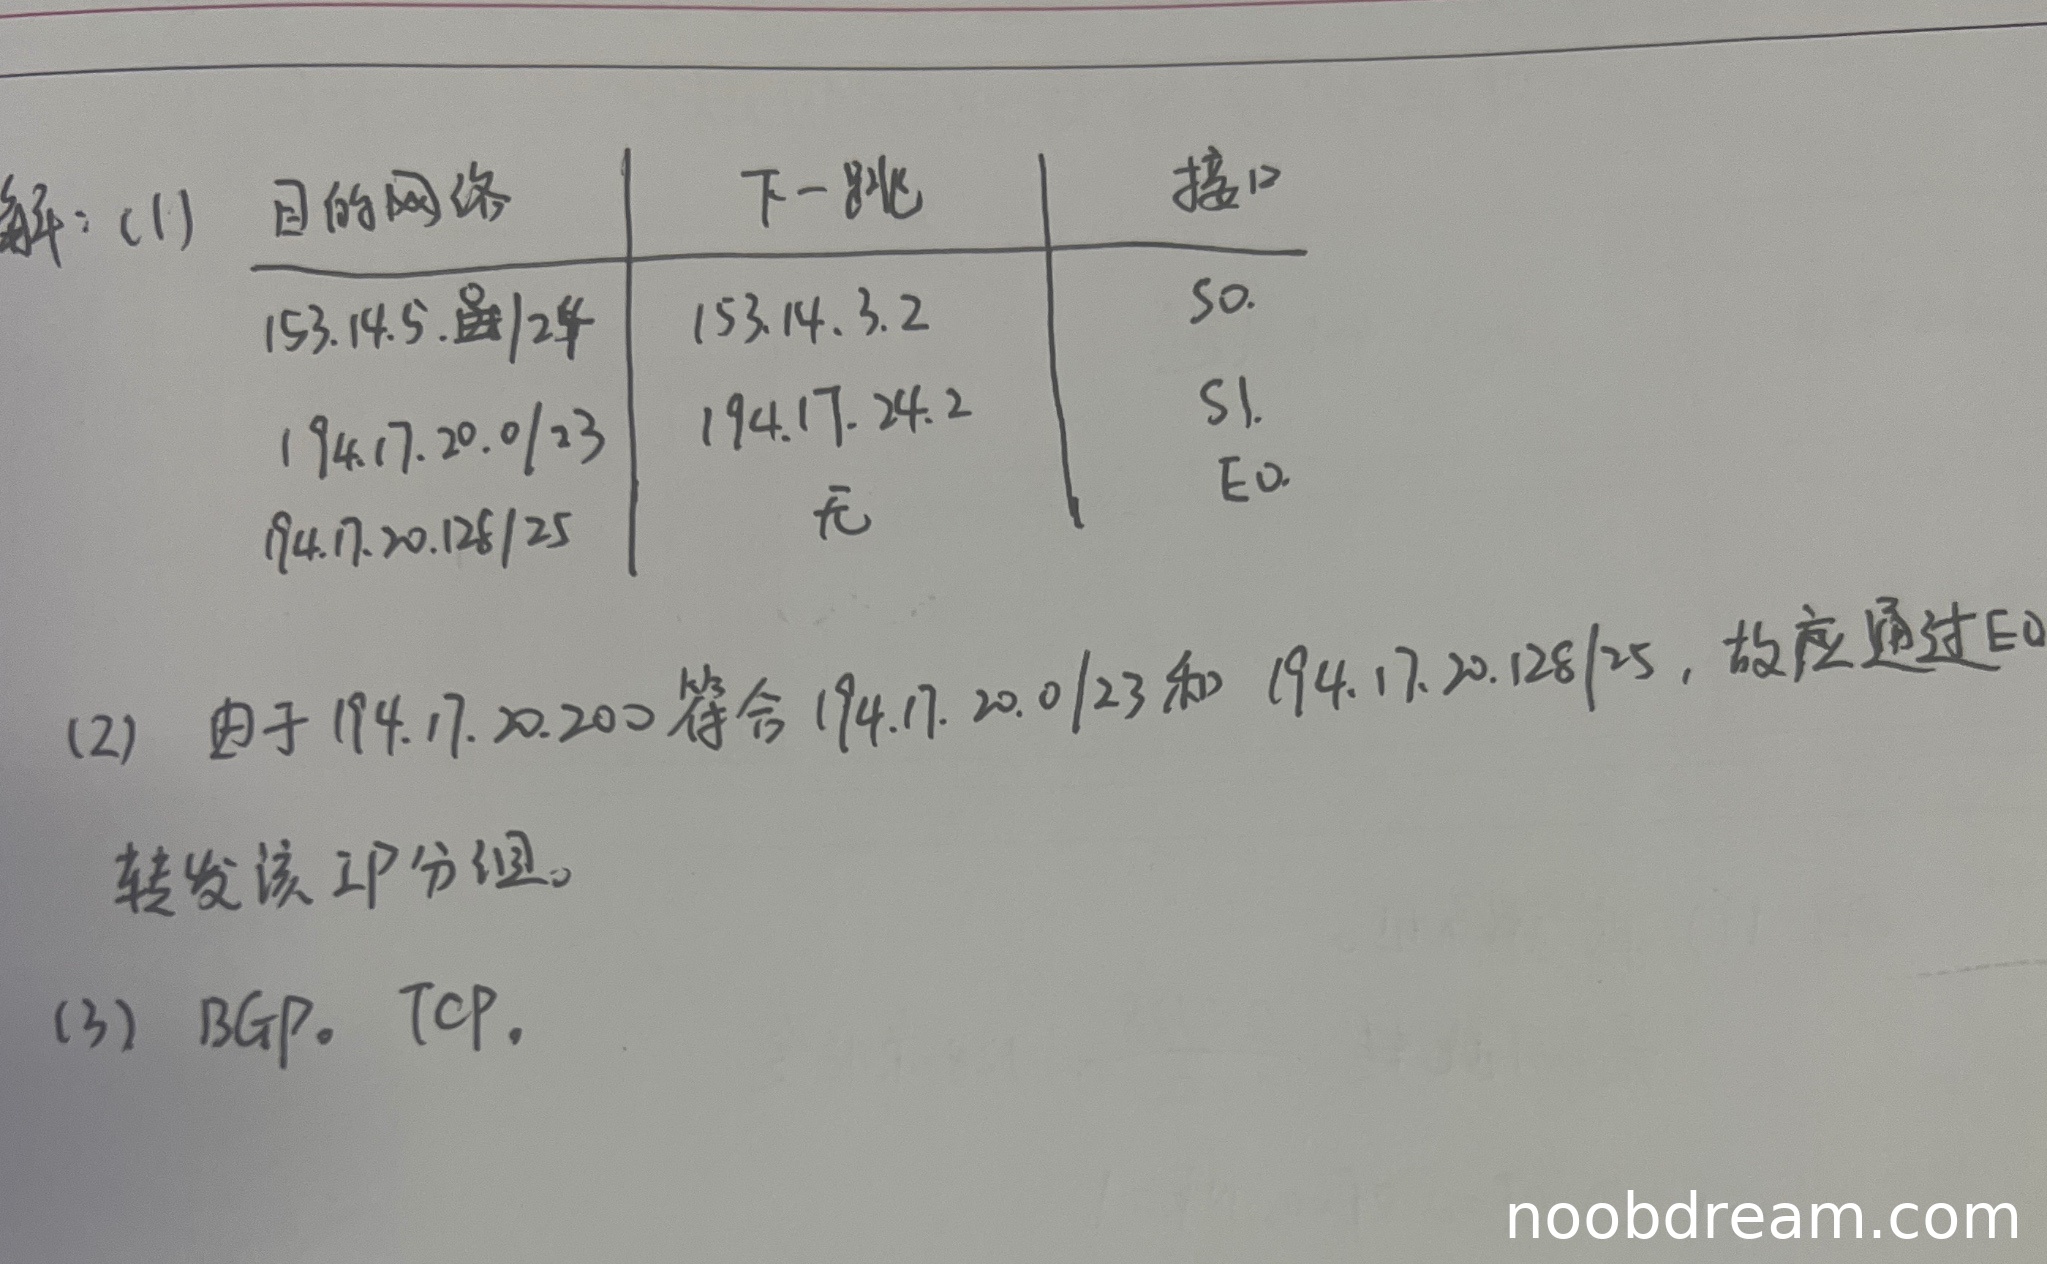 解：(1) 目的网络 下一跳 接口
153.14.5.0/24 153.14.3.2 S0.
194.17.20.0/23 194.17.24.2 S1.
194.17.20.128/25 无 E0.
(2) 由于 194.17.20.200 符合 194.17.20.0/23 和 194.17.20.128/25，故应通过E0
转发该IP分组。
(3) BGP。 TCP.
noobdream.com